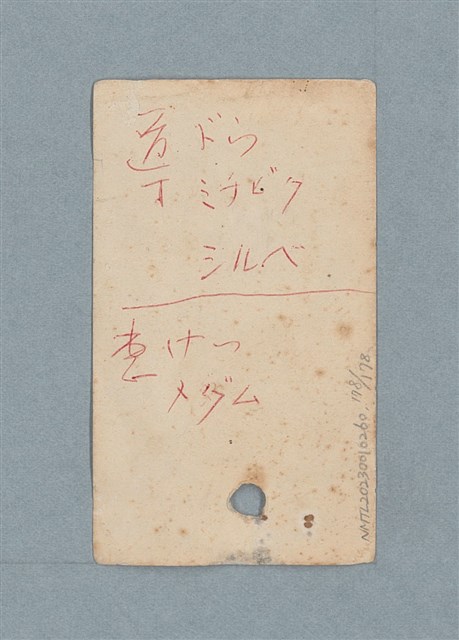 導 ドウ
ミチビク
シルベ
恵 けい
メグム
NMTL20230010260, 178/178